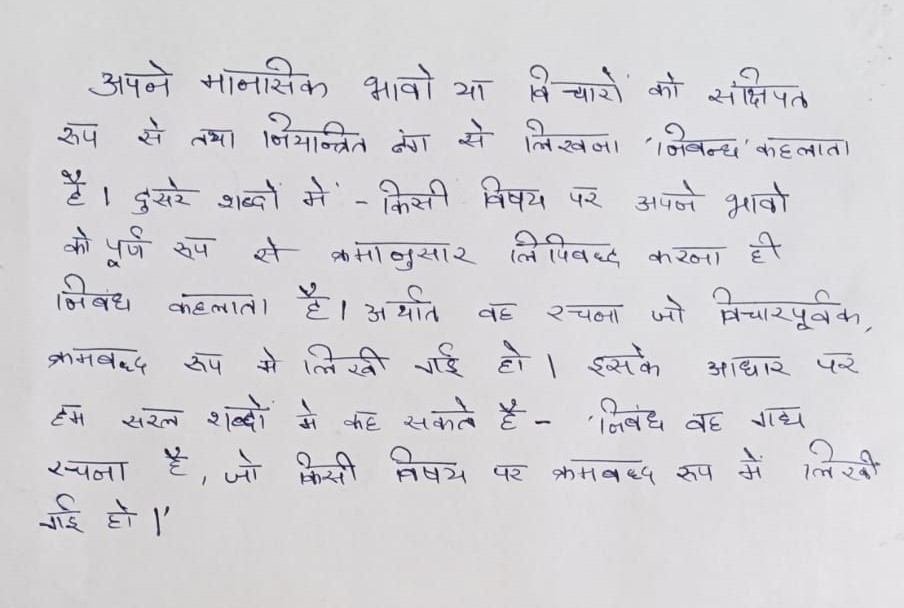 अपने मानसिक भावो या विचारों को संक्षिपत
रूप से तथा नियान्त्रित ढंग से लिखना 'निबन्ध' कहलाता
है । दुसरे शब्दों में - किसी विषय पर अपने भावो
को पूर्ण रूप से क्रमानुसार लिपिबध्द करना ही
निबंध कहलाता है । अर्थात वह रचना जो विचारपूर्वक,
क्रमबध्द रूप मे लिखी गई हो । इसके आधार पर
हम सरल शब्दों मे कह सकते है - 'निबंध वह गद्य
रचना है, जो किसी विषय पर क्रमबध्द रूप में लिखी
गई हो ।'